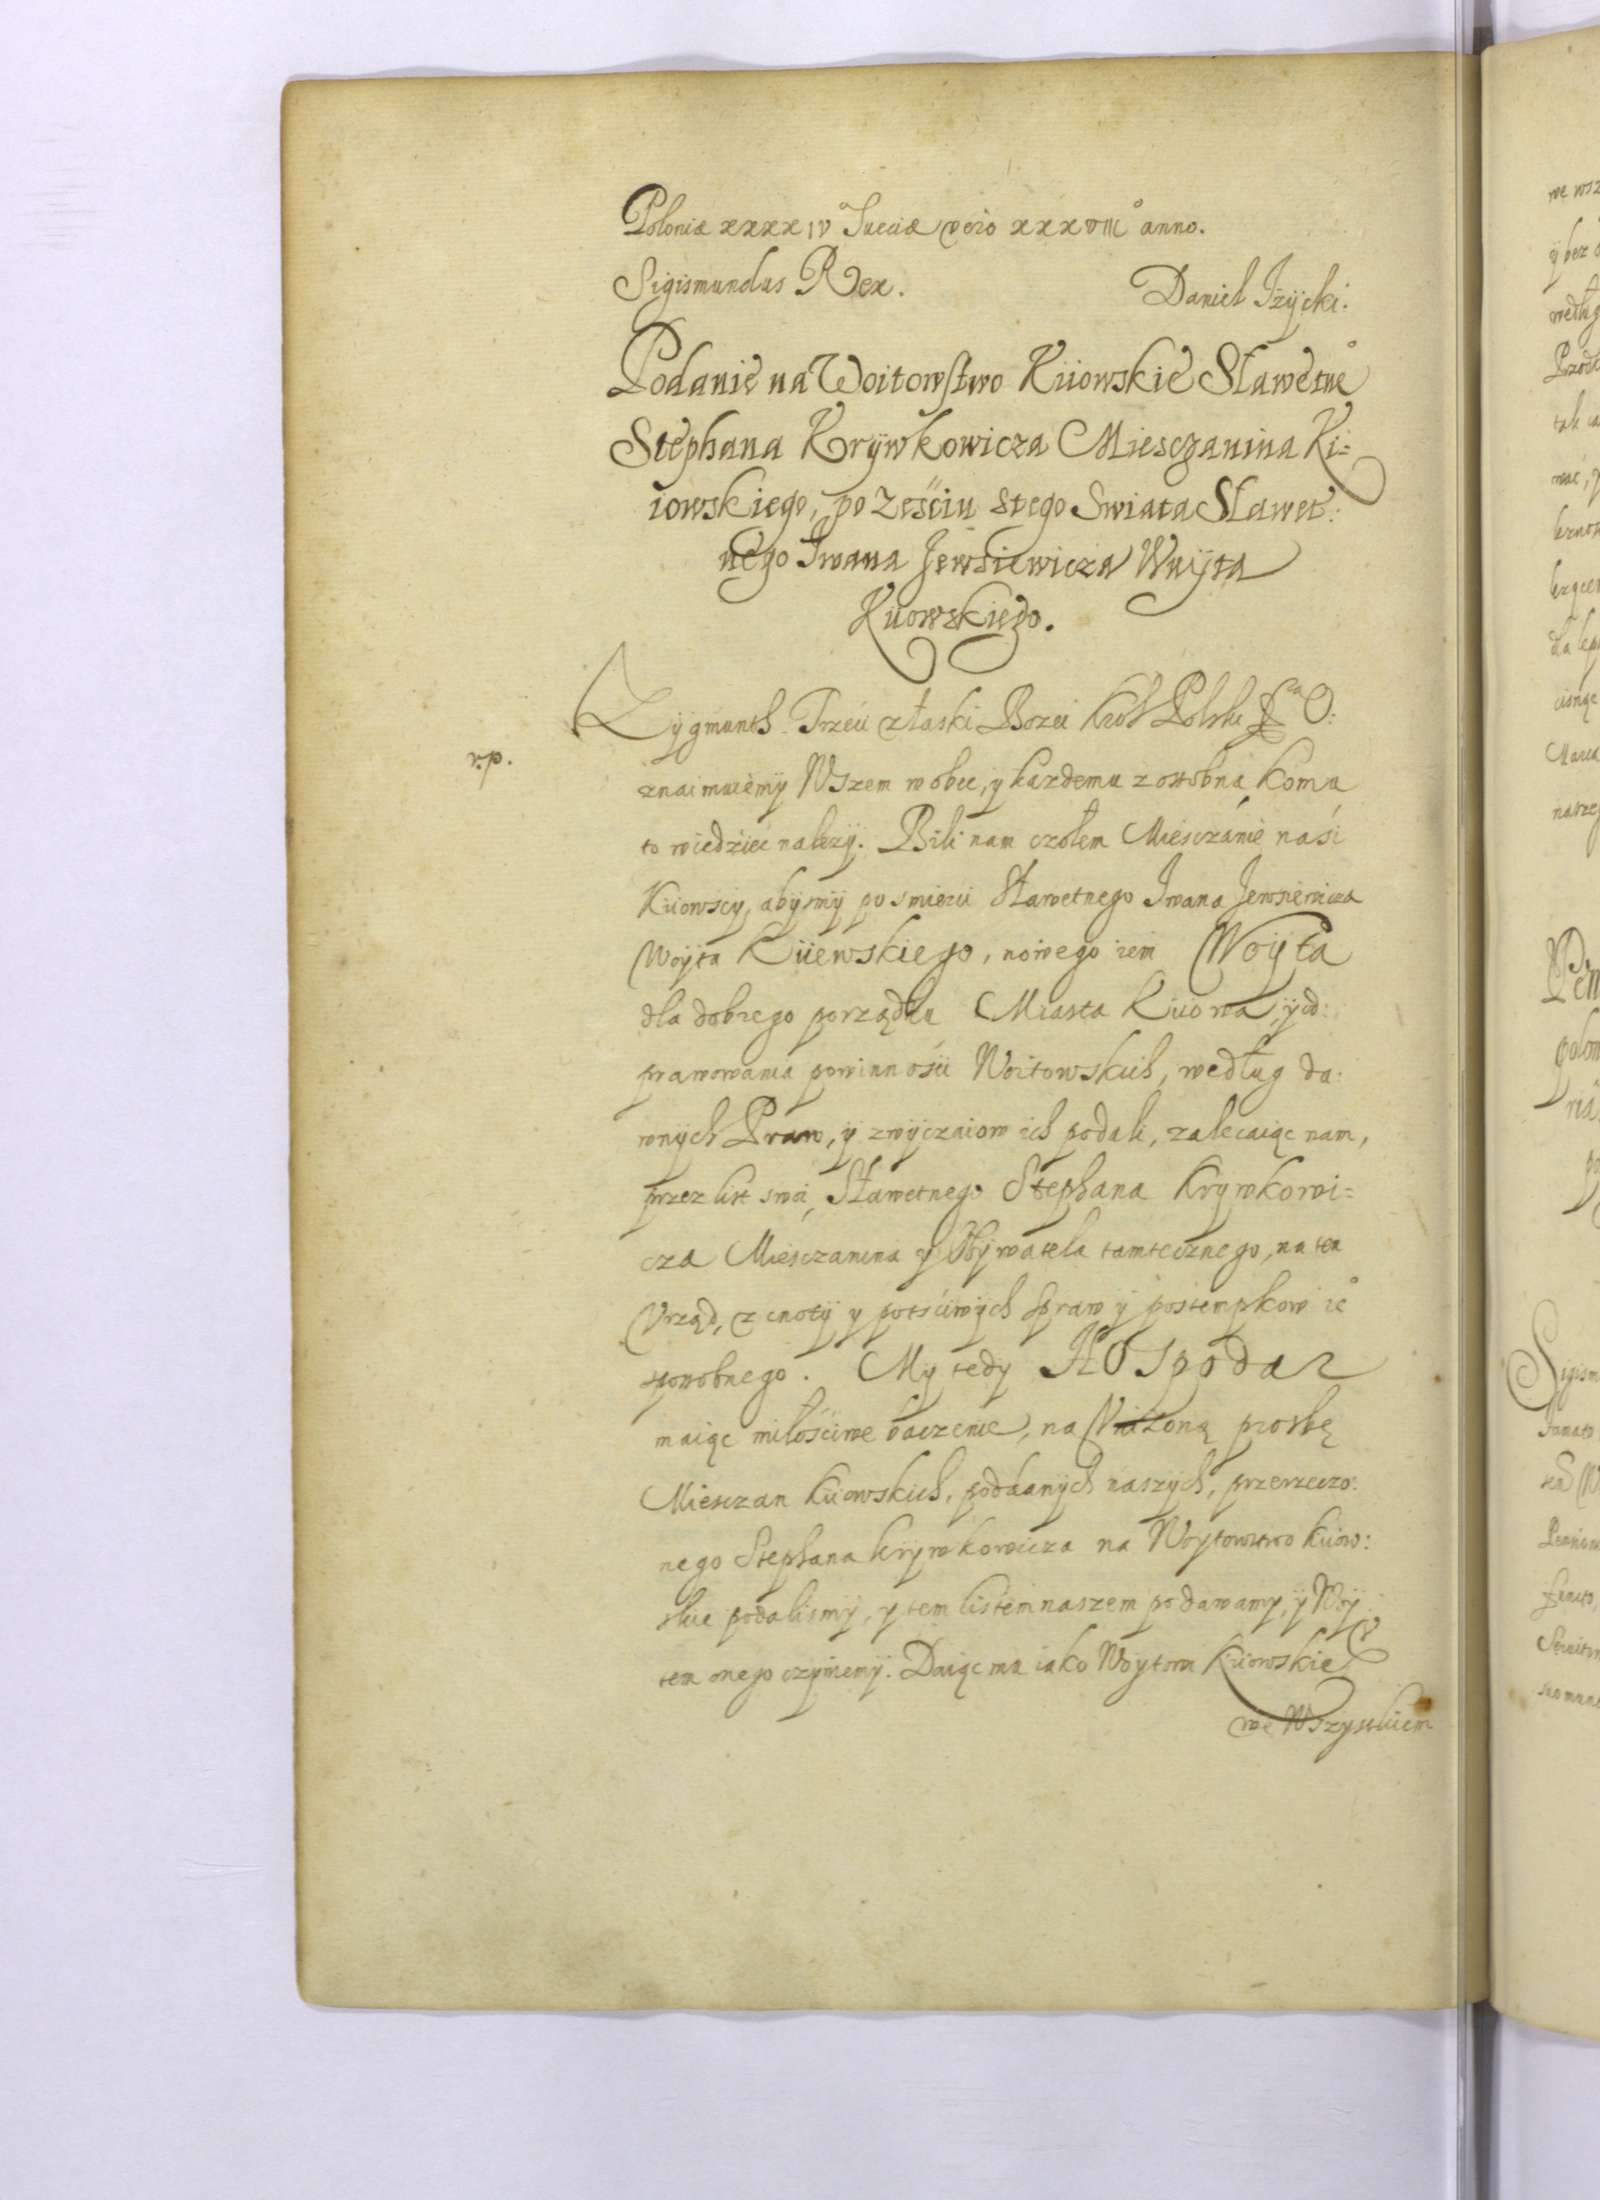 Poloniæ xxxxıv° Sueciæ vero xxxviii° anno.
Sigismundus Rex. Daniel Iżÿcki.
Podanie na Woitowstwo Kiiowskie Sławetne°
Stephana Krÿwkowicza Miesczanina Ki=
iowskiego, po ześciu stego Swiata Sławet:
nego Iwana Jewsiewicza Wuÿta
Kiiowskiego.
Zÿgmunth Trzeci złaski Bozei Krol Polski O:
r.p.
znaimuiemÿ Wszem wobec, y kazdemu zosobna Komu
to wiedzieć nalezÿ. Bili nam czołem Miesczanie naśi
Kiiowscy, abÿsmÿ po smierci Sławetnego Iwana Jewsiewicza
Woÿta Kiiewskiego, nowego iem Woÿta
dla dobrego porządku Miasta Kiiowa, ÿ od:
prawowania powinnośći Woitowskich, według da:
wnÿch Praw, ÿ zwÿczaiow ich podali, zalecaiąc nam,
przez list swoi, Sławetnego Stephana Krywkowi=
cza Miesczanina y Obÿwatela tamtecznego, na ten
Vrząd, z cnotÿ y potsciwÿch spraw ÿ postempkow ie°
sposobnego. My tedy HOspodar
maiąc miłośćiwe baczenie, na Vniżoną prosbę
Miesczan Kiiowskich, poddanÿch naszÿch, przerzeczo:
nego Stephana Krÿwkowicza na Woytowstwo Kiiow:
skie podalismÿ, y tem listem naszem podawamy, ÿ Woÿ
tem onego czÿniemÿ. Daiąc mu iako Woytowi Kiiowskie°
we Wszystkiem
we wsz
ÿ bez
według
tak
dla lep
Sigism